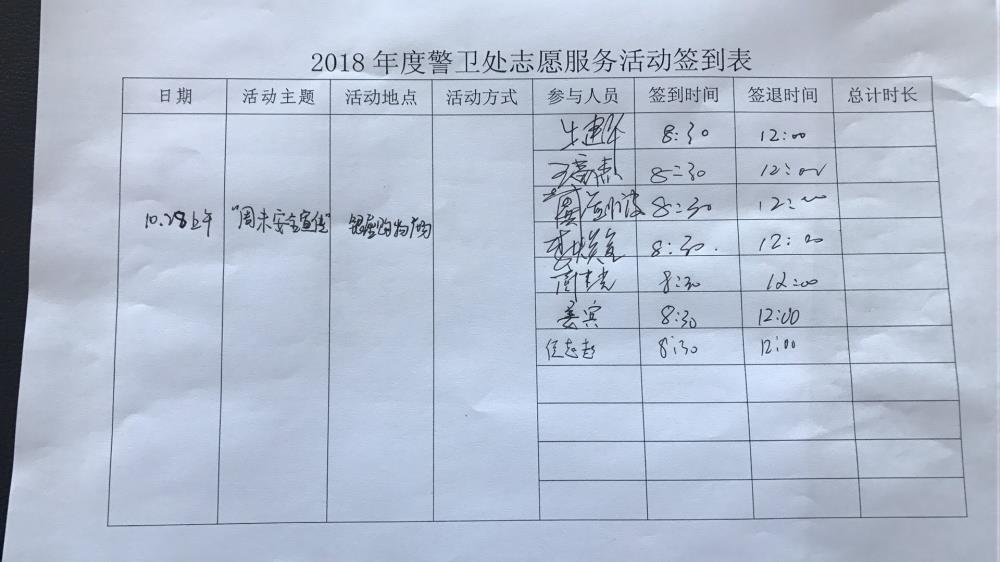 2018年度警卫处志愿服务活动签到表
日期 活动主题 活动地点 活动方式 参与人员 签到时间 签退时间 总计时长
8:30 12:00
8:30 12:00
8:30 12:00
10.28上午 "周末安全宣传" 购物广场
8:30. 12:00
8:30 12:00
宾 8:30 12:00
任志超 8:30 12:00